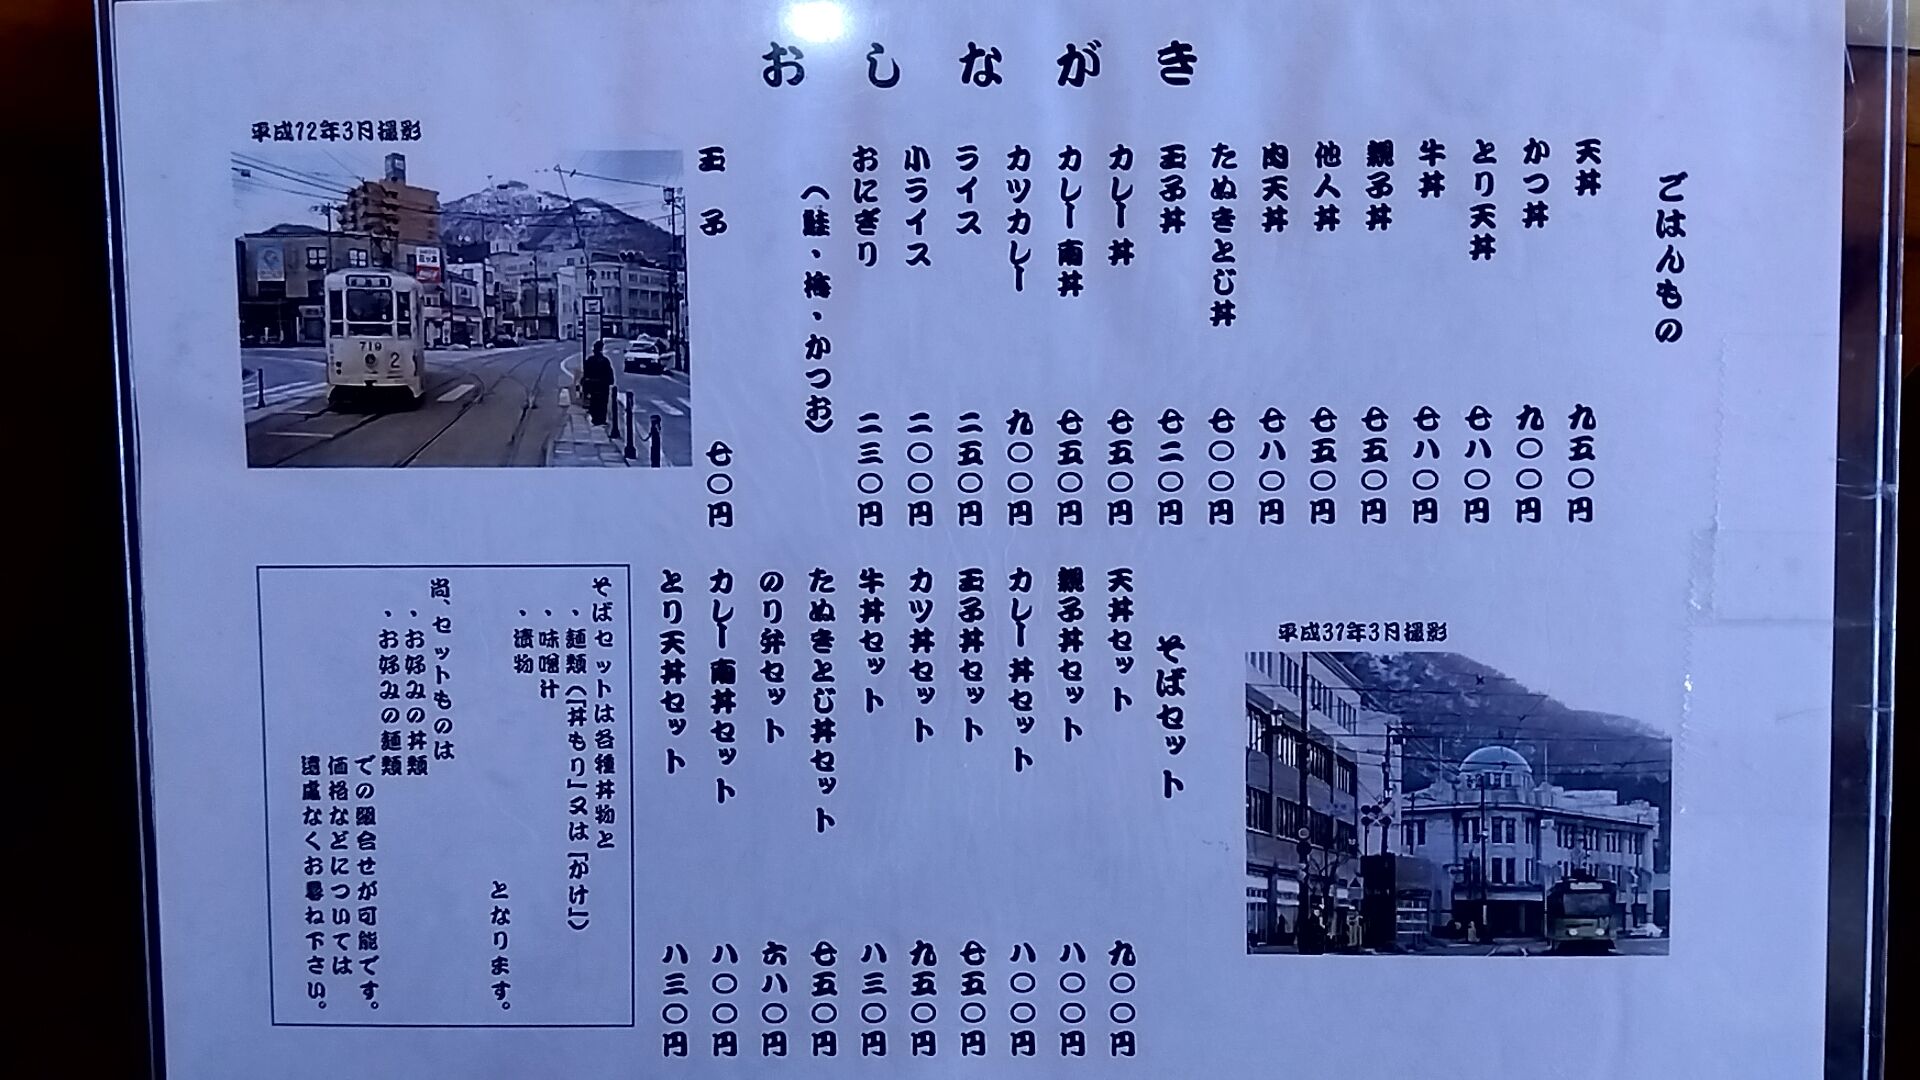 おしながき
ごはんもの
天丼 九五〇円
かつ丼 九〇〇円
とり天丼 七八〇円
牛丼 七八〇円
親子丼 七五〇円
他人丼 七五〇円
肉天丼 七八〇円
たぬきとじ丼 七〇〇円
玉子丼 七二〇円
カレー丼 七五〇円
カレー南丼 七五〇円
カツカレー 九〇〇円
ライス 二五〇円
小ライス 二〇〇円
おにぎり 二三〇円
(鮭・梅・かつお)
玉子 七〇円
平成12年3月撮影
719
2
平成31年3月撮影
そばセット
天丼セット 九〇〇円
親子丼セット 八〇〇円
カレー丼セット 八〇〇円
玉子丼セット 七五〇円
カツ丼セット 九五〇円
牛丼セット 八三〇円
たぬきとじ丼セット 七五〇円
のり弁セット 六八〇円
カレー南丼セット 八〇〇円
とり天丼セット 八三〇円
そばセットは各種丼物と
・麺類(「丼もり」又は「かけ」)
・味噌汁
・漬物
となります。
尚、セットものは
・お好みの丼類
・お好みの麺類
での組合せが可能です。
価格などについては
遠慮なくお尋ね下さい。